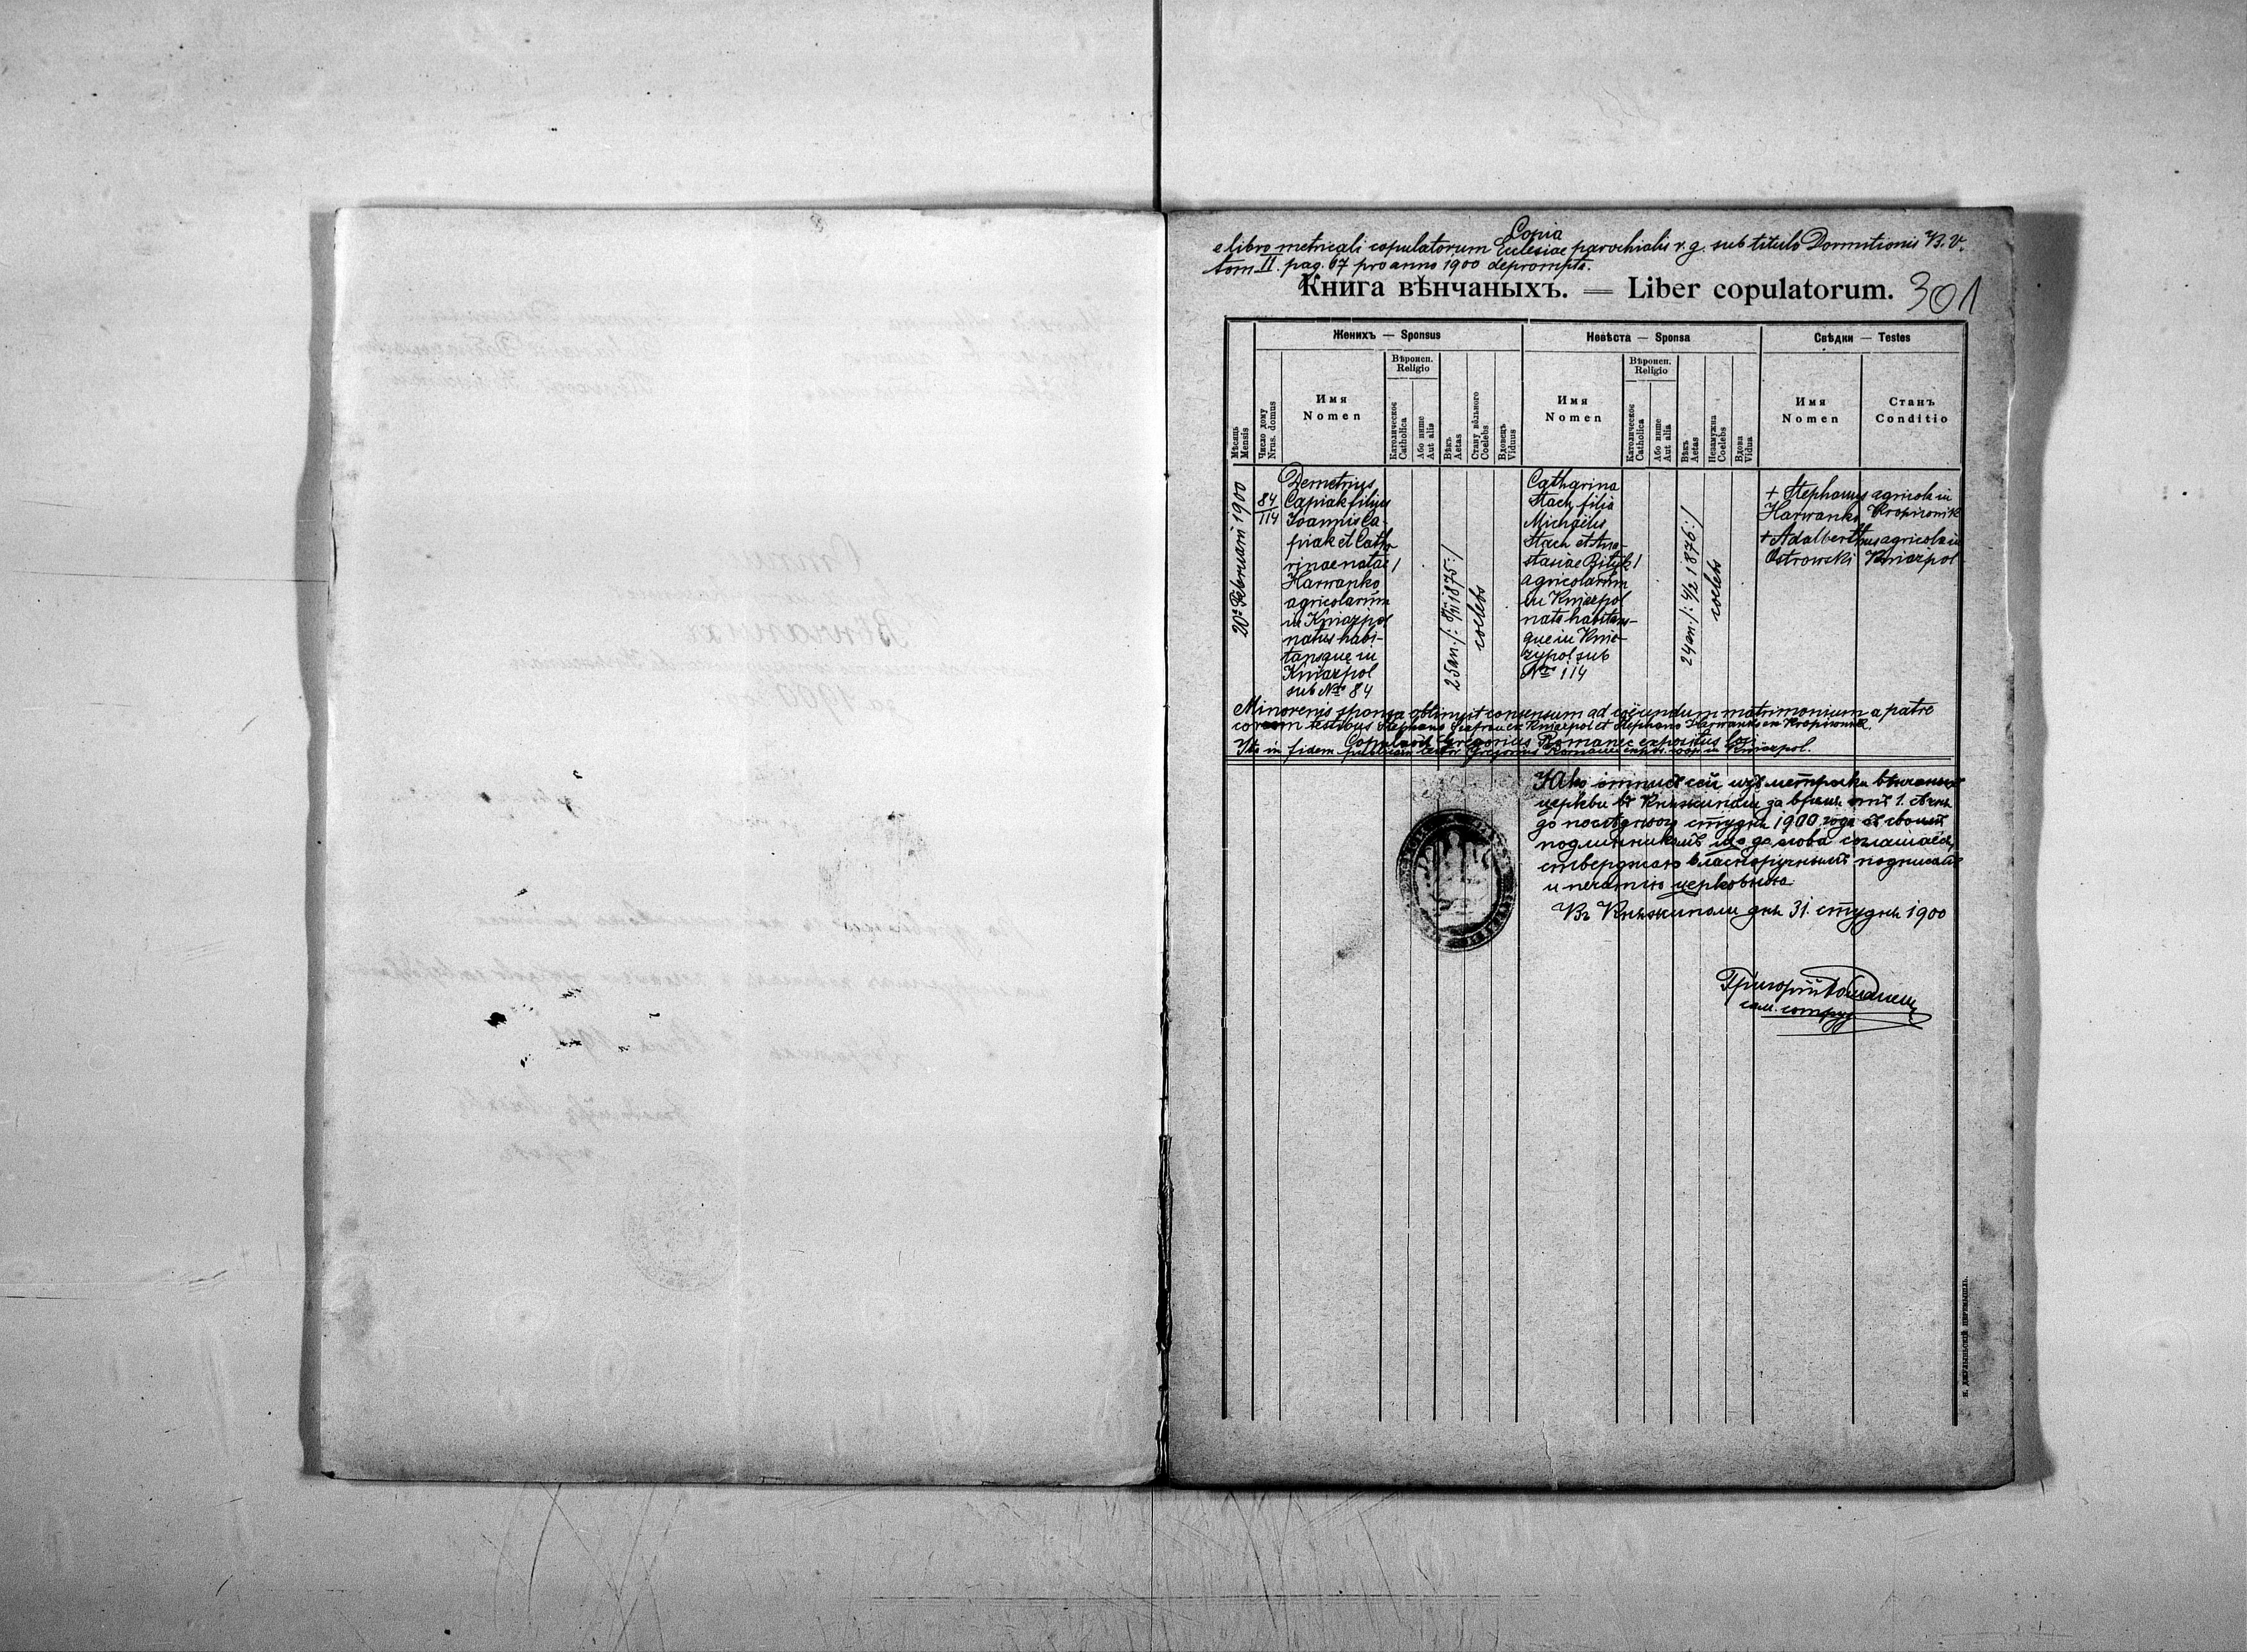 Copia
e libro metricali copulatorum Ecclesiae parochialis r. g. sub titulo Dormitionis B. V.
tom II. pag. 67 pro anno 1900 deprompta.
Книга вѣнчаныхъ. — Liber copulatorum. 301
Женихъ — Sponsus
Невѣста — Sponsa
Свѣдки — Testes
Мѣсяць
Mensis
Число дому
Nrus. domus
Имя
Nomen
Вѣроисп.
Religio
Католическое
Catholica
Або инше
Aut alia
Вѣкъ
Aetas
Стану вѣльного
Coelebs
Вдовець
Viduus
Имя
Nomen
Вѣроисп.
Religio
Католическое
Catholica
Або инше
Aut alia
Вѣкъ
Aetas
Незамужна
Coelebs
Вдова
Vidua
Имя
Nomen
Станъ
Conditio
20 Februarii 1900
84
114
Demetrius
Capiak filius
Joannis Ca-
piak et Catha
rinae natae /
Harwanko
agricolarum
in Kniazpol
natus habi-
tansque in
Kniazpol
sub Nro 84
25 an. /: 1875 :/
coelebs
Catharina
Stach filia
Michaëlis
Stach et Ana-
stasiae Bilyk /
agricolarum
in Kniazpol
nata habitans-
que in Knia-
zypol sub
Nro 114
24 an. /: 4/2 1876 :/
coelebs
+ Stephanus
Harwanko
+ Adalberthus
Ostrowski
agricola in
Kropiwnik
agricola in
Kniazpol
Minorenis sponsa obtinuit consensum ad coëundum matrimonium a patre
coram testibus Stephano ex Kniazpol et Stephano Harwanko ex Kropiwnik.
Copulavit Gregorius Romanec expositus loci
Ita in fidem Gregorius in Kniazpol.
Яко отписъ сей изъ метрики вѣнчаныхъ
церкви въ Княжиполи за время отъ 1. Сѣчня
до послѣднего студня 1900 года съ своимъ
подлинникомъ що до слова соглашаеся,
стверджаю власноручнымъ подписомъ
и печатію церковною.
Въ Княжиполи дня 31. студня 1900
Григорій Романец
сам. сотруд.